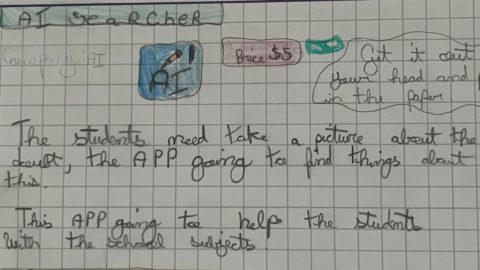 AI SEARCHER
Company: AI
AI
Price $5
Get it out
your head and p
in the paper
The students need take a picture about the
doubt, the APP going to find things about
this.
This APP going to help the students
with the school subjects.